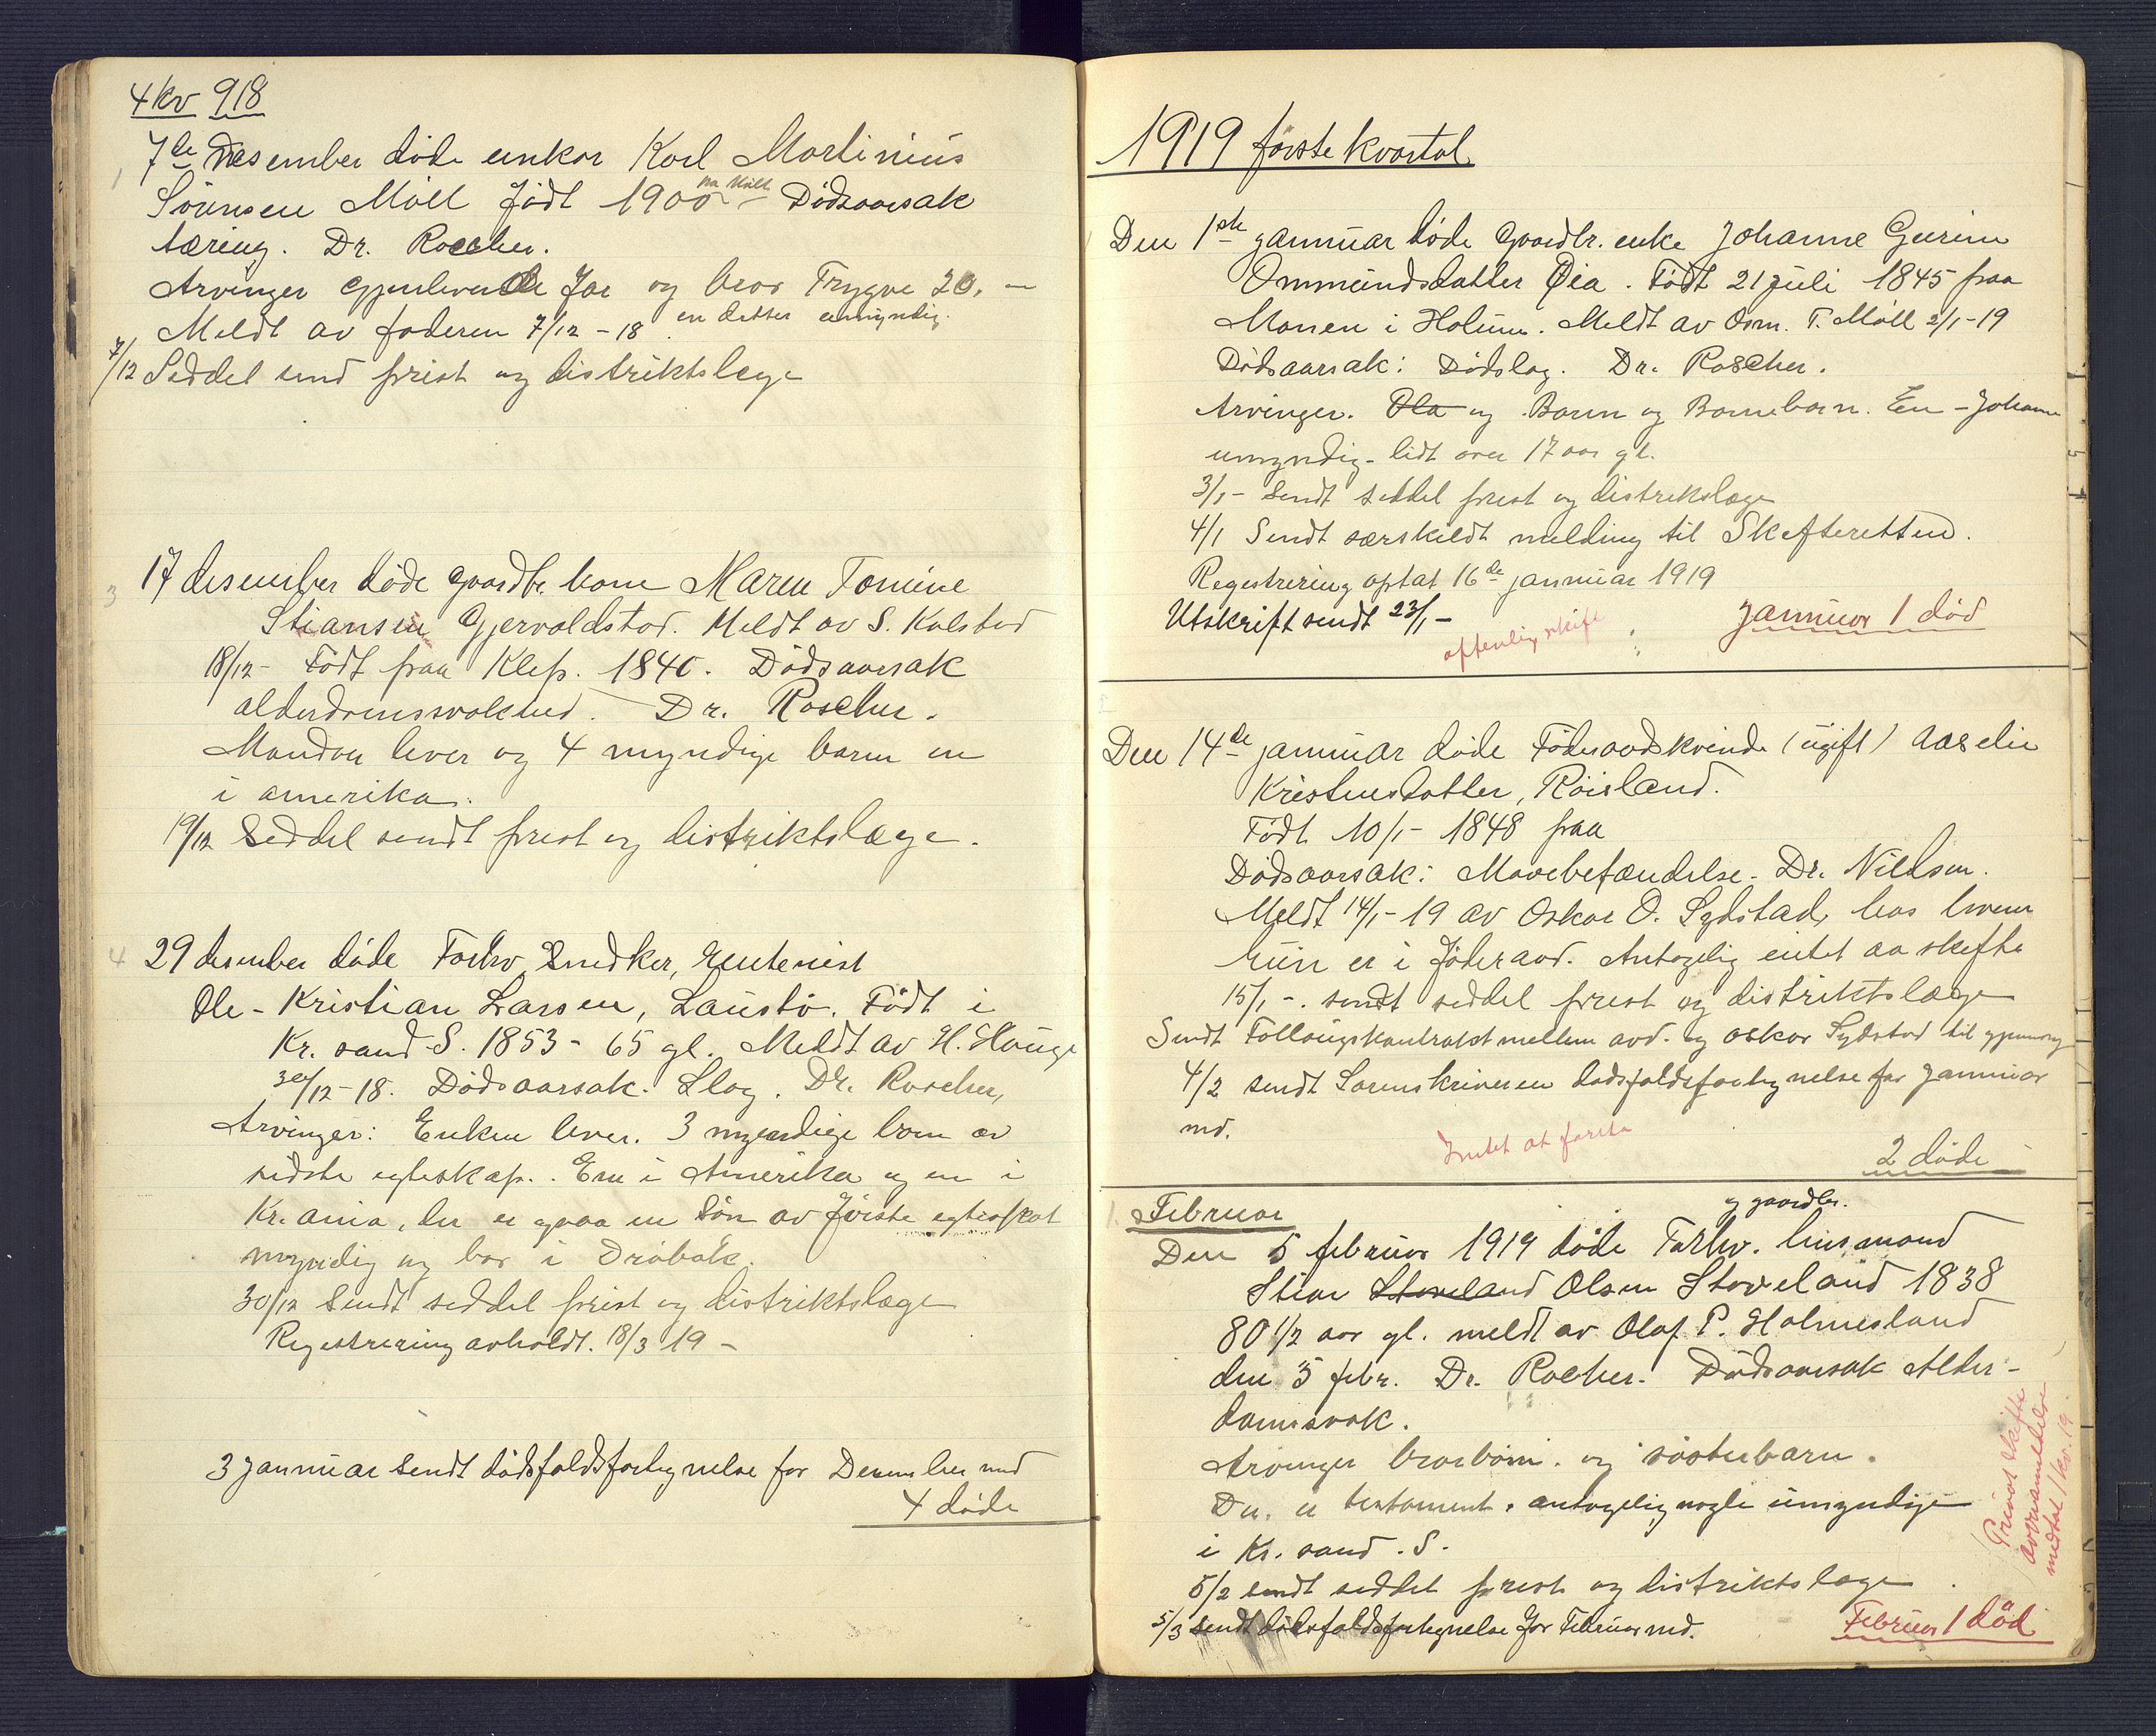 4 kv 918
1 7de Desember døde unkar Karl Martinius
Sørensen Møll født 1900 fra Møll Dødsaarsak
tæring. Dr. Roscher.
Arvinger gjenlevende far og bror Trygve 20. -
en datter umyndig.
Meldt av faderen 7/12 - 18.
7/12 Seddel send prest og distriktslege
3 17 desember døde gaardbr. kone Maren Tomine
Stiansen Gjervoldstad. Meldt av S. Kalstad
18/12 - Født fraa Klep. 1840. Dødsaarsak
alderdomssvakhed. Dr. Roscher.
Mandn lever og 4 myndige barn en
i amerika.
19/12 Seddel sendt prest og distriktslæge.
4 29 desember døde Forhv Snedker, Rentenist
Ole - Kristian Larsen, Laustø. Født i
Kr. sand S. 1853 - 65 gl. Meldt av H. Hauge
30/12 - 18. Dødsaarsak. Slag. Dr. Roscher,
Arvinger: Enken lever. 3 myendige barn av
sidste egteskap. En i Amerika og en i
Kr. ania, der er ogsaa en Søn av første egteskat
myndig og bor i Drøbak.
30/12 Sendt seddel prest og distriktslæge
Regestrering avholdt. 18/3 19 -
3 januar sendt dødsfaldsfortegnelse for Desember md
4 døde
1919 første kvartal
Den 1ste januar døde gaardbr. enke Johanne Gurine
Ommundsdatter Øia. Født 21 juli 1845 fraa
Monen i Holum. Meldt av Osm. T. Møll 2/1-19
Dødsaarsak: Dødslag. Dr. Roscher.
Arvinger. Ola og Barn og Barnebarn. En - Johanne
umyndig - lidt over 17 aar gl.
3/1 - Sendt seddel prest og distrikslæge
4/1 Sendt særskildt melding til Skefteretten.
Regestrering optat 16de januar 1919
Utskrift sendt 23/1 -
offenlig skifte
januar 1 død
Den 14de januar døde Føderaadskvinde (ugift) Aaselie
Kristensdatter, Røisland.
Født 10/1 - 1848 fraa
Dødsaarsak: Mavebetændelse. Dr. Nilsen.
Meldt 14/1 - 19 av Oskar O. Sydstad, hos hvem
hun er i føderaad. Antagelig entet aa skefte
15/1 -. sendt seddel prest og distriktslæge
Sendt Follougskontrakt mellem avd. og oskar Sydstad til
4/2 sendt Sorenskriveren dødsfaldsfortegnelse for januar
md.
Intet at foreta
2 døde
1 Februar
og gaardbr.
Den 5 februar 1919 døde Forhv. husmand
Stian Stoveland Olsen Stoveland 1838
80 1/2 aar gl. meldt av Olaf P. Holmesland
den 5 febr. Dr. Rocher. Dødsaarsak Alder-
domssvak.
Arvinger brorbørn. og søsterbarn.
Der er testament. antagelig nogle umyndige
i Kr. sand. S.
5/2 sendt seddel prest og distriktslæge
5/3 sendt dødsfaldsfortegnelse for Februar md.
Februar 1 død
Privat skifte
medtat 1 kv. 19.